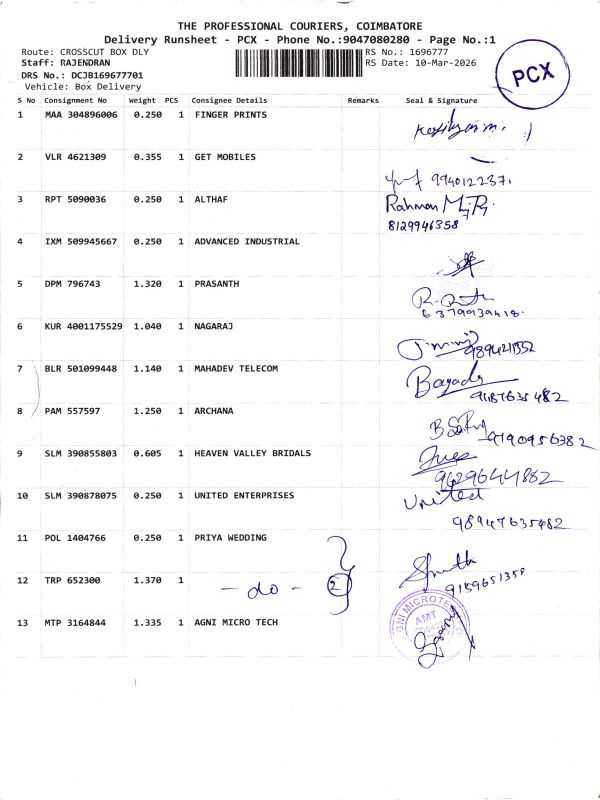 THE PROFESSIONAL COURIERS, COIMBATORE
Delivery Runsheet - PCX - Phone No.:9047080280 - Page No.:1
Route: CROSSCUT BOX DLY RS No.: 1696777
Staff: RAJENDRAN RS Date: 10-Mar-2026
DRS No.: DCJB169677701
Vehicle: Box Delivery
PCX
S No Consignment No Weight PCS Consignee Details Remarks Seal & Signature
1 MAA 304896006 0.250 1 FINGER PRINTS
2 VLR 4621309 0.355 1 GET MOBILES
994012237.
3 RPT 5090036 0.250 1 ALTHAF Rahman
8129946358
4 IXM 509945667 0.250 1 ADVANCED INDUSTRIAL
5 DPM 796743 1.320 1 PRASANTH
6379939418.
6 KUR 4001175529 1.040 1 NAGARAJ
7 BLR 501099448 1.140 1 MAHADEV TELECOM
8 PAM 557597 1.250 1 ARCHANA
9190956382
9 SLM 390855803 0.605 1 HEAVEN VALLEY BRIDALS
9629644882
10 SLM 390878075 0.250 1 UNITED ENTERPRISES United
98947635482
11 POL 1404766 0.250 1 PRIYA WEDDING
12 TRP 652300 1.370 1 - do - 2
9159651358
13 MTP 3164844 1.335 1 AGNI MICRO TECH
AMT